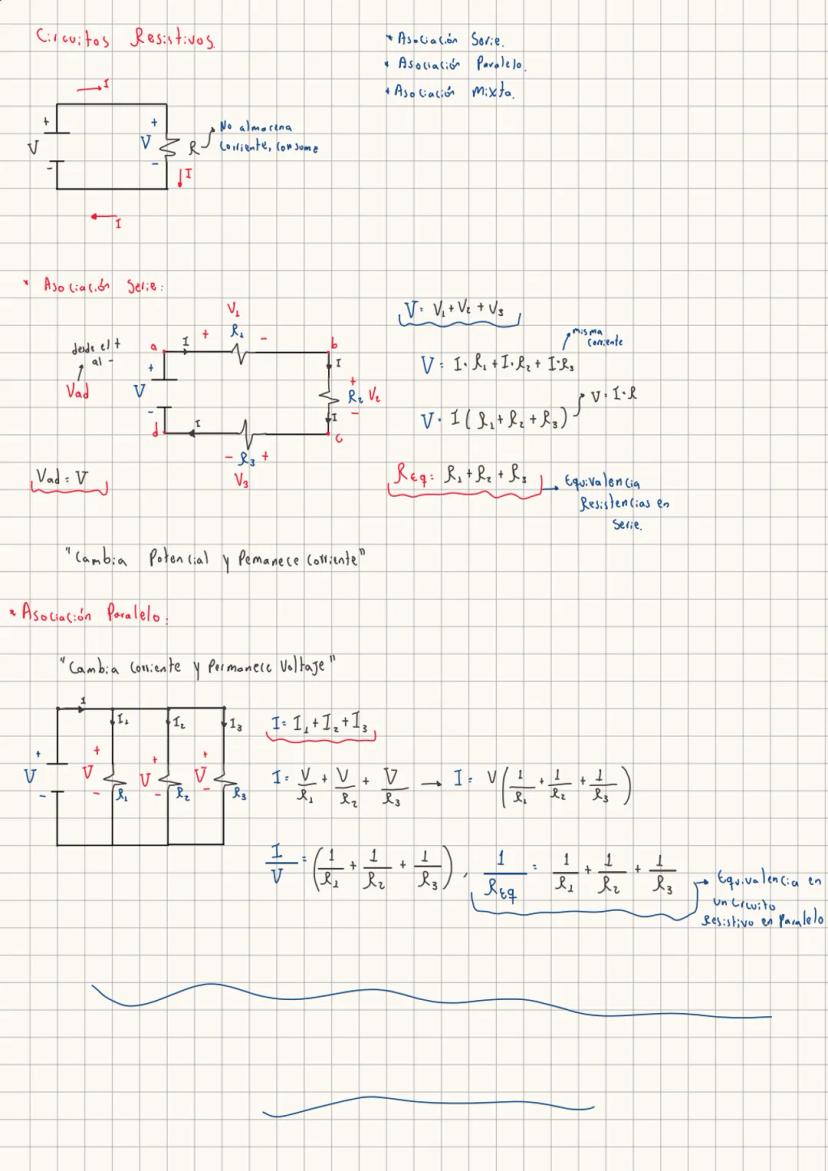 Circuitos Resistivos
* Asociación Serie.
* Asociación Paralelo.
* Asociación Mixta.
I
+ + No almacena
V V R corriente, consume
- - I
I
* Asociación Serie:
V₁
+ R₁ -
desde el +
al -
Vad
a I b
+ I
V
-
+
R₂ V₂
-
I
d I c
- R₃ +
V₃
Vad = V
V = V₁ + V₂ + V₃
misma
corriente
V = I·R₁ + I·R₂ + I·R₃
V = I·R
V = I (R₁ + R₂ + R₃)
REq = R₁ + R₂ + R₃
Equivalencia
Resistencias en
Serie.
"Cambia Potencial y Pemanece Corriente"
* Asociación Paralelo:
"Cambia Corriente y Permanece Voltaje"
I
I₁ I₂ I₃
+ + + +
V V V V
- - R₁ - R₂ - R₃
I = I₁ + I₂ + I₃
I = V/R₁ + V/R₂ + V/R₃ → I = V(1/R₁ + 1/R₂ + 1/R₃)
I/V = (1/R₁ + 1/R₂ + 1/R₃), 1/REq = 1/R₁ + 1/R₂ + 1/R₃
Equivalencia en
un Circuito
Resistivo en Paralelo